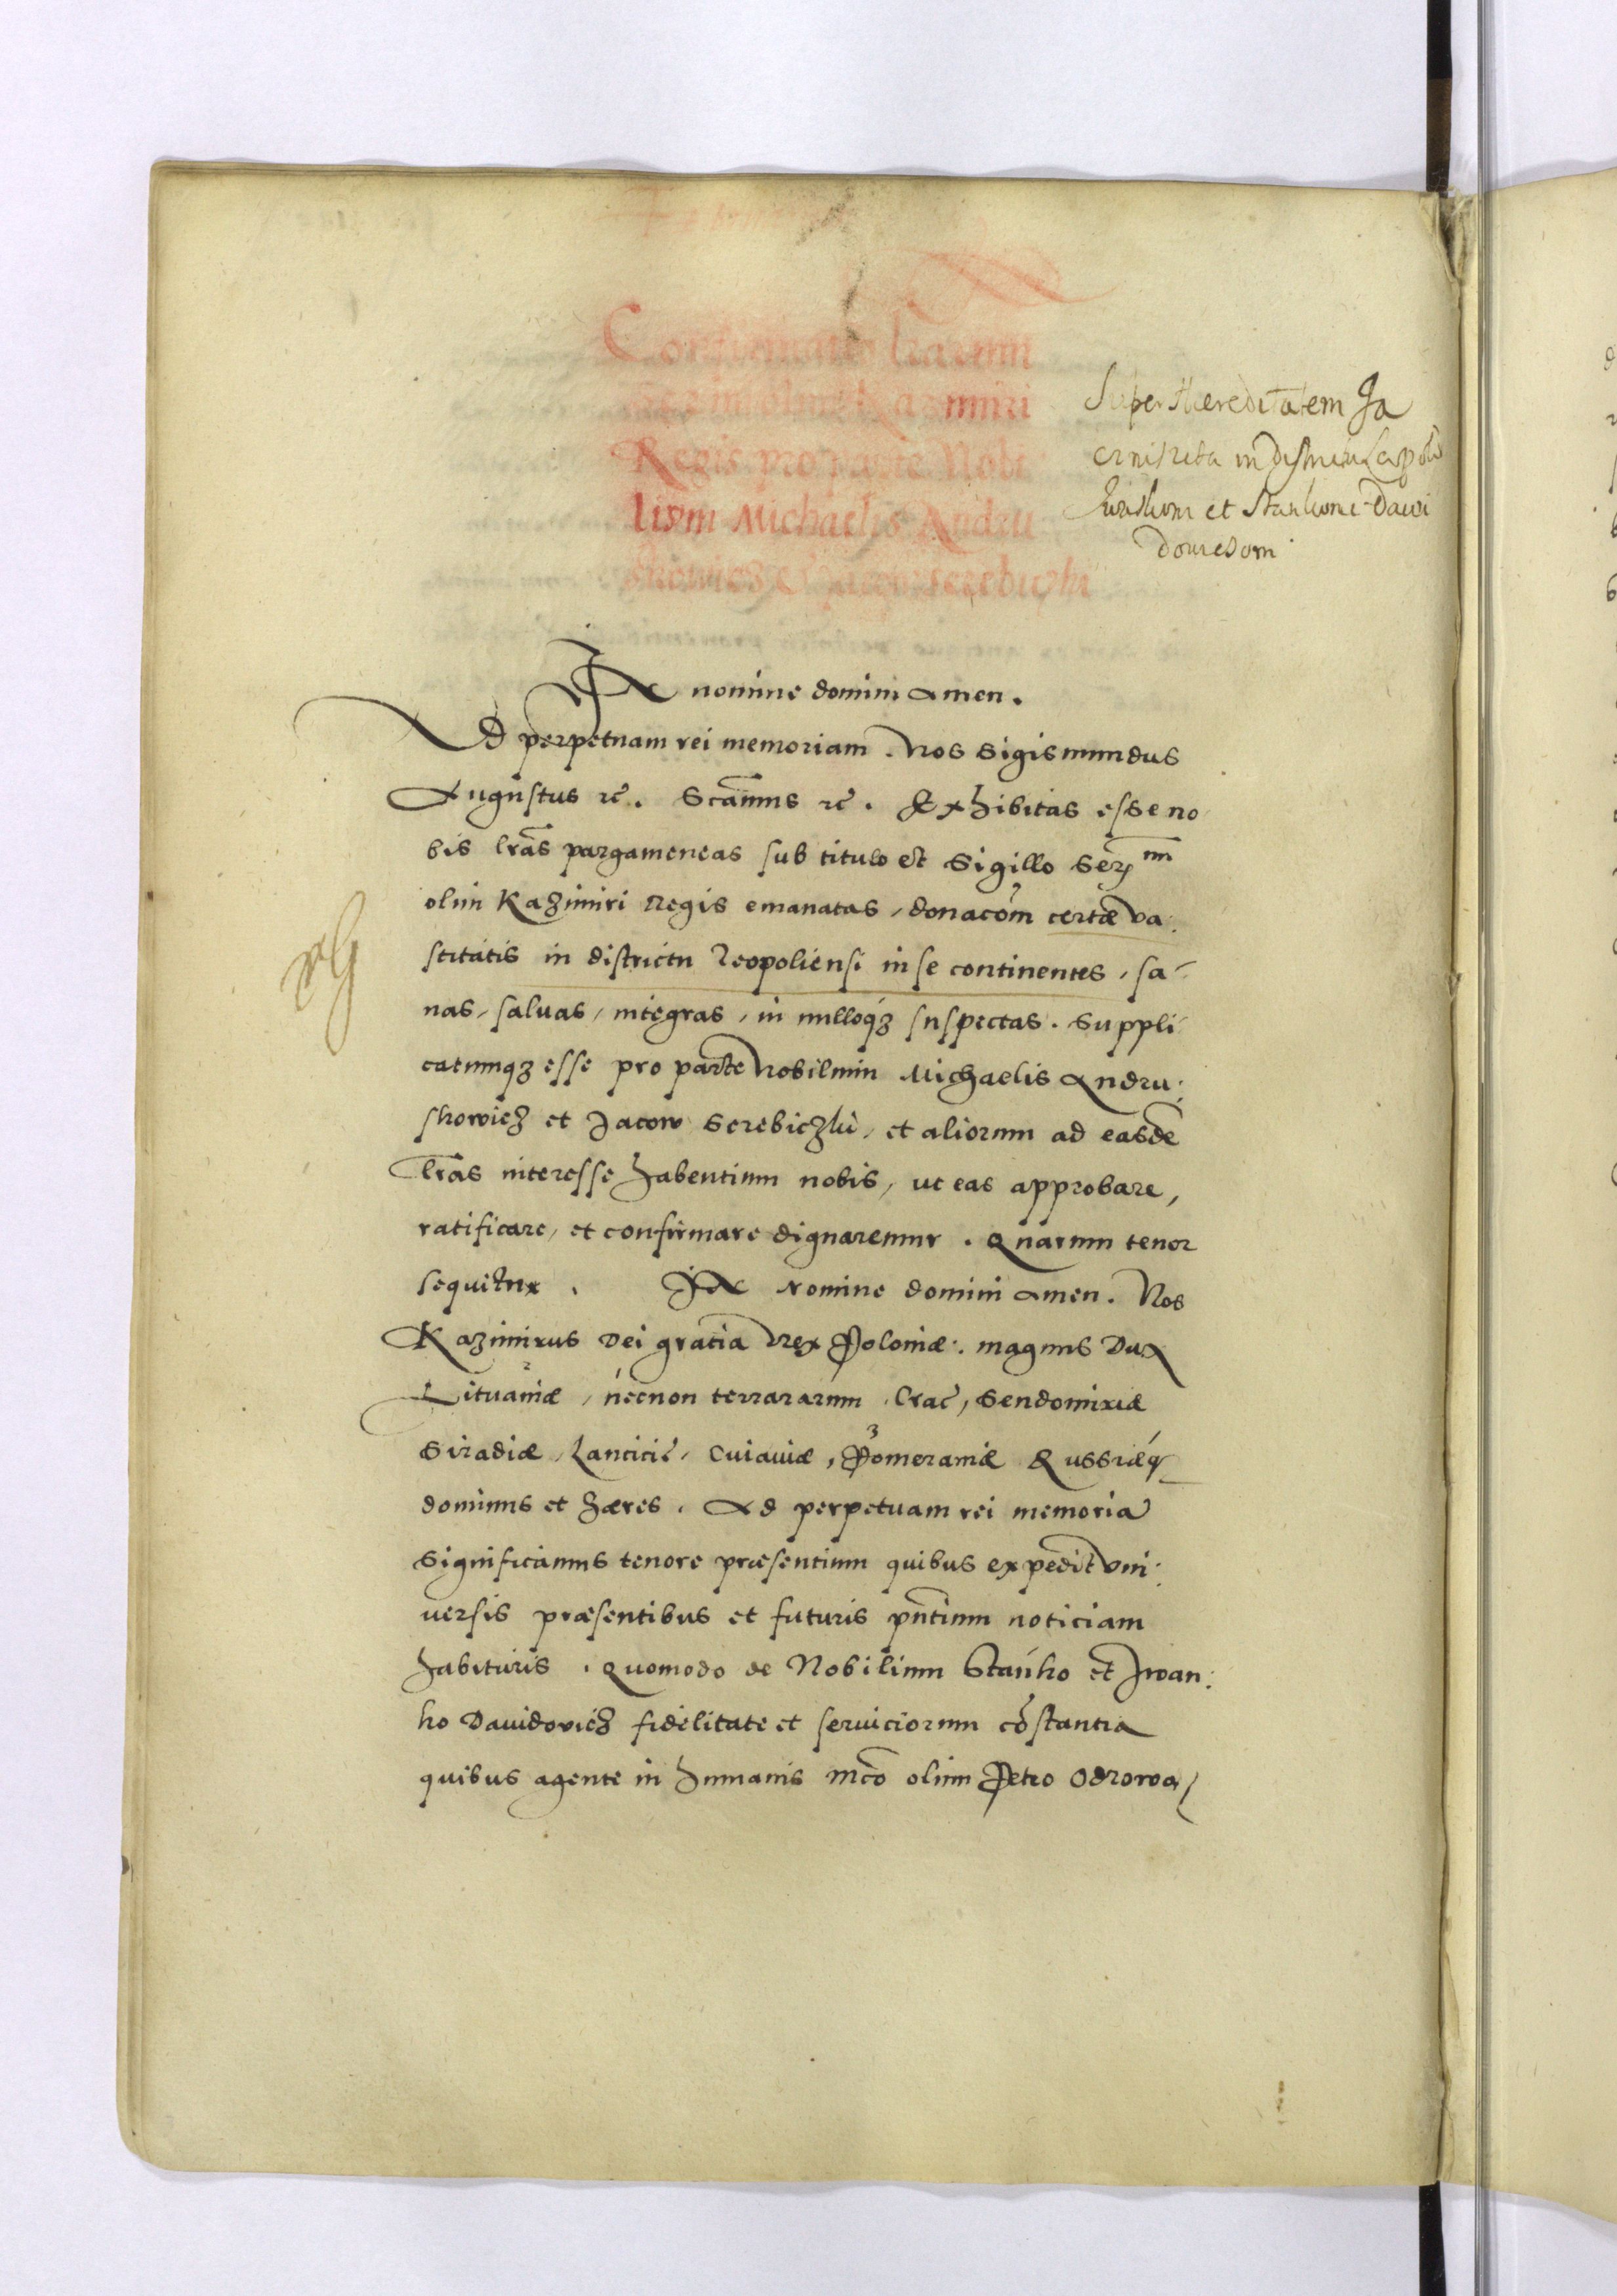 Confirmatio lrarum
Ser mi olim Kazimiri
Regis pro parte Nobi
lium Michaelis Andru
showicz et Jacow Serebiczhi
Super Hereditatem Ja
in districtu Leopolis
et Stanhone Dawi
dowedom
In nomine domini amen.
Ad perpetuam rei memoriam. Nos Sigismundus
Augustus rc̄. Scām̄us rc̄. Exhibitas esse no
bis lrās pargameneas sub titulo et Sigillo Serᵐⁱ
olim Kazimiri Regis emanatas, donacōm certæ va:
stitatis in districtu Leopoliensi in se continentes, sa-
nas, saluas, integras, in nulloqʒ suspectas. Suppli
catumqʒ esse pro parte Nobilium Michaelis Andru:
showicz et Jacow Serebiczhi, et aliorum ad easdē
lrās interesse habentium nobis, ut eas approbare,
ratificare, et confirmare dignaremur. Quarum tenor
sequitur. In Nomine domini amen. Nos
Kazimirus Dei gratia Rex Poloniæ. magnus Dux
Lituaniæ, necnon terrararum Crac̄, Sendomiriæ
Siradiæ, Lancicie, Cuiauiæ, Pomeraniæ Russiæq
dominus et hæres. Ad perpetuam rei memoriā
Significamus tenore præsentium quibus expedit vni:
uersis præsentibus et futuris pn̄tium noticiam
habituris. Quomodo de Nobilium Stanho et Iwan:
ho Dauidowicz fidelitate et seruiciorum cōstantia
quibus agente in humanis Mcō olim Petro Odrowa